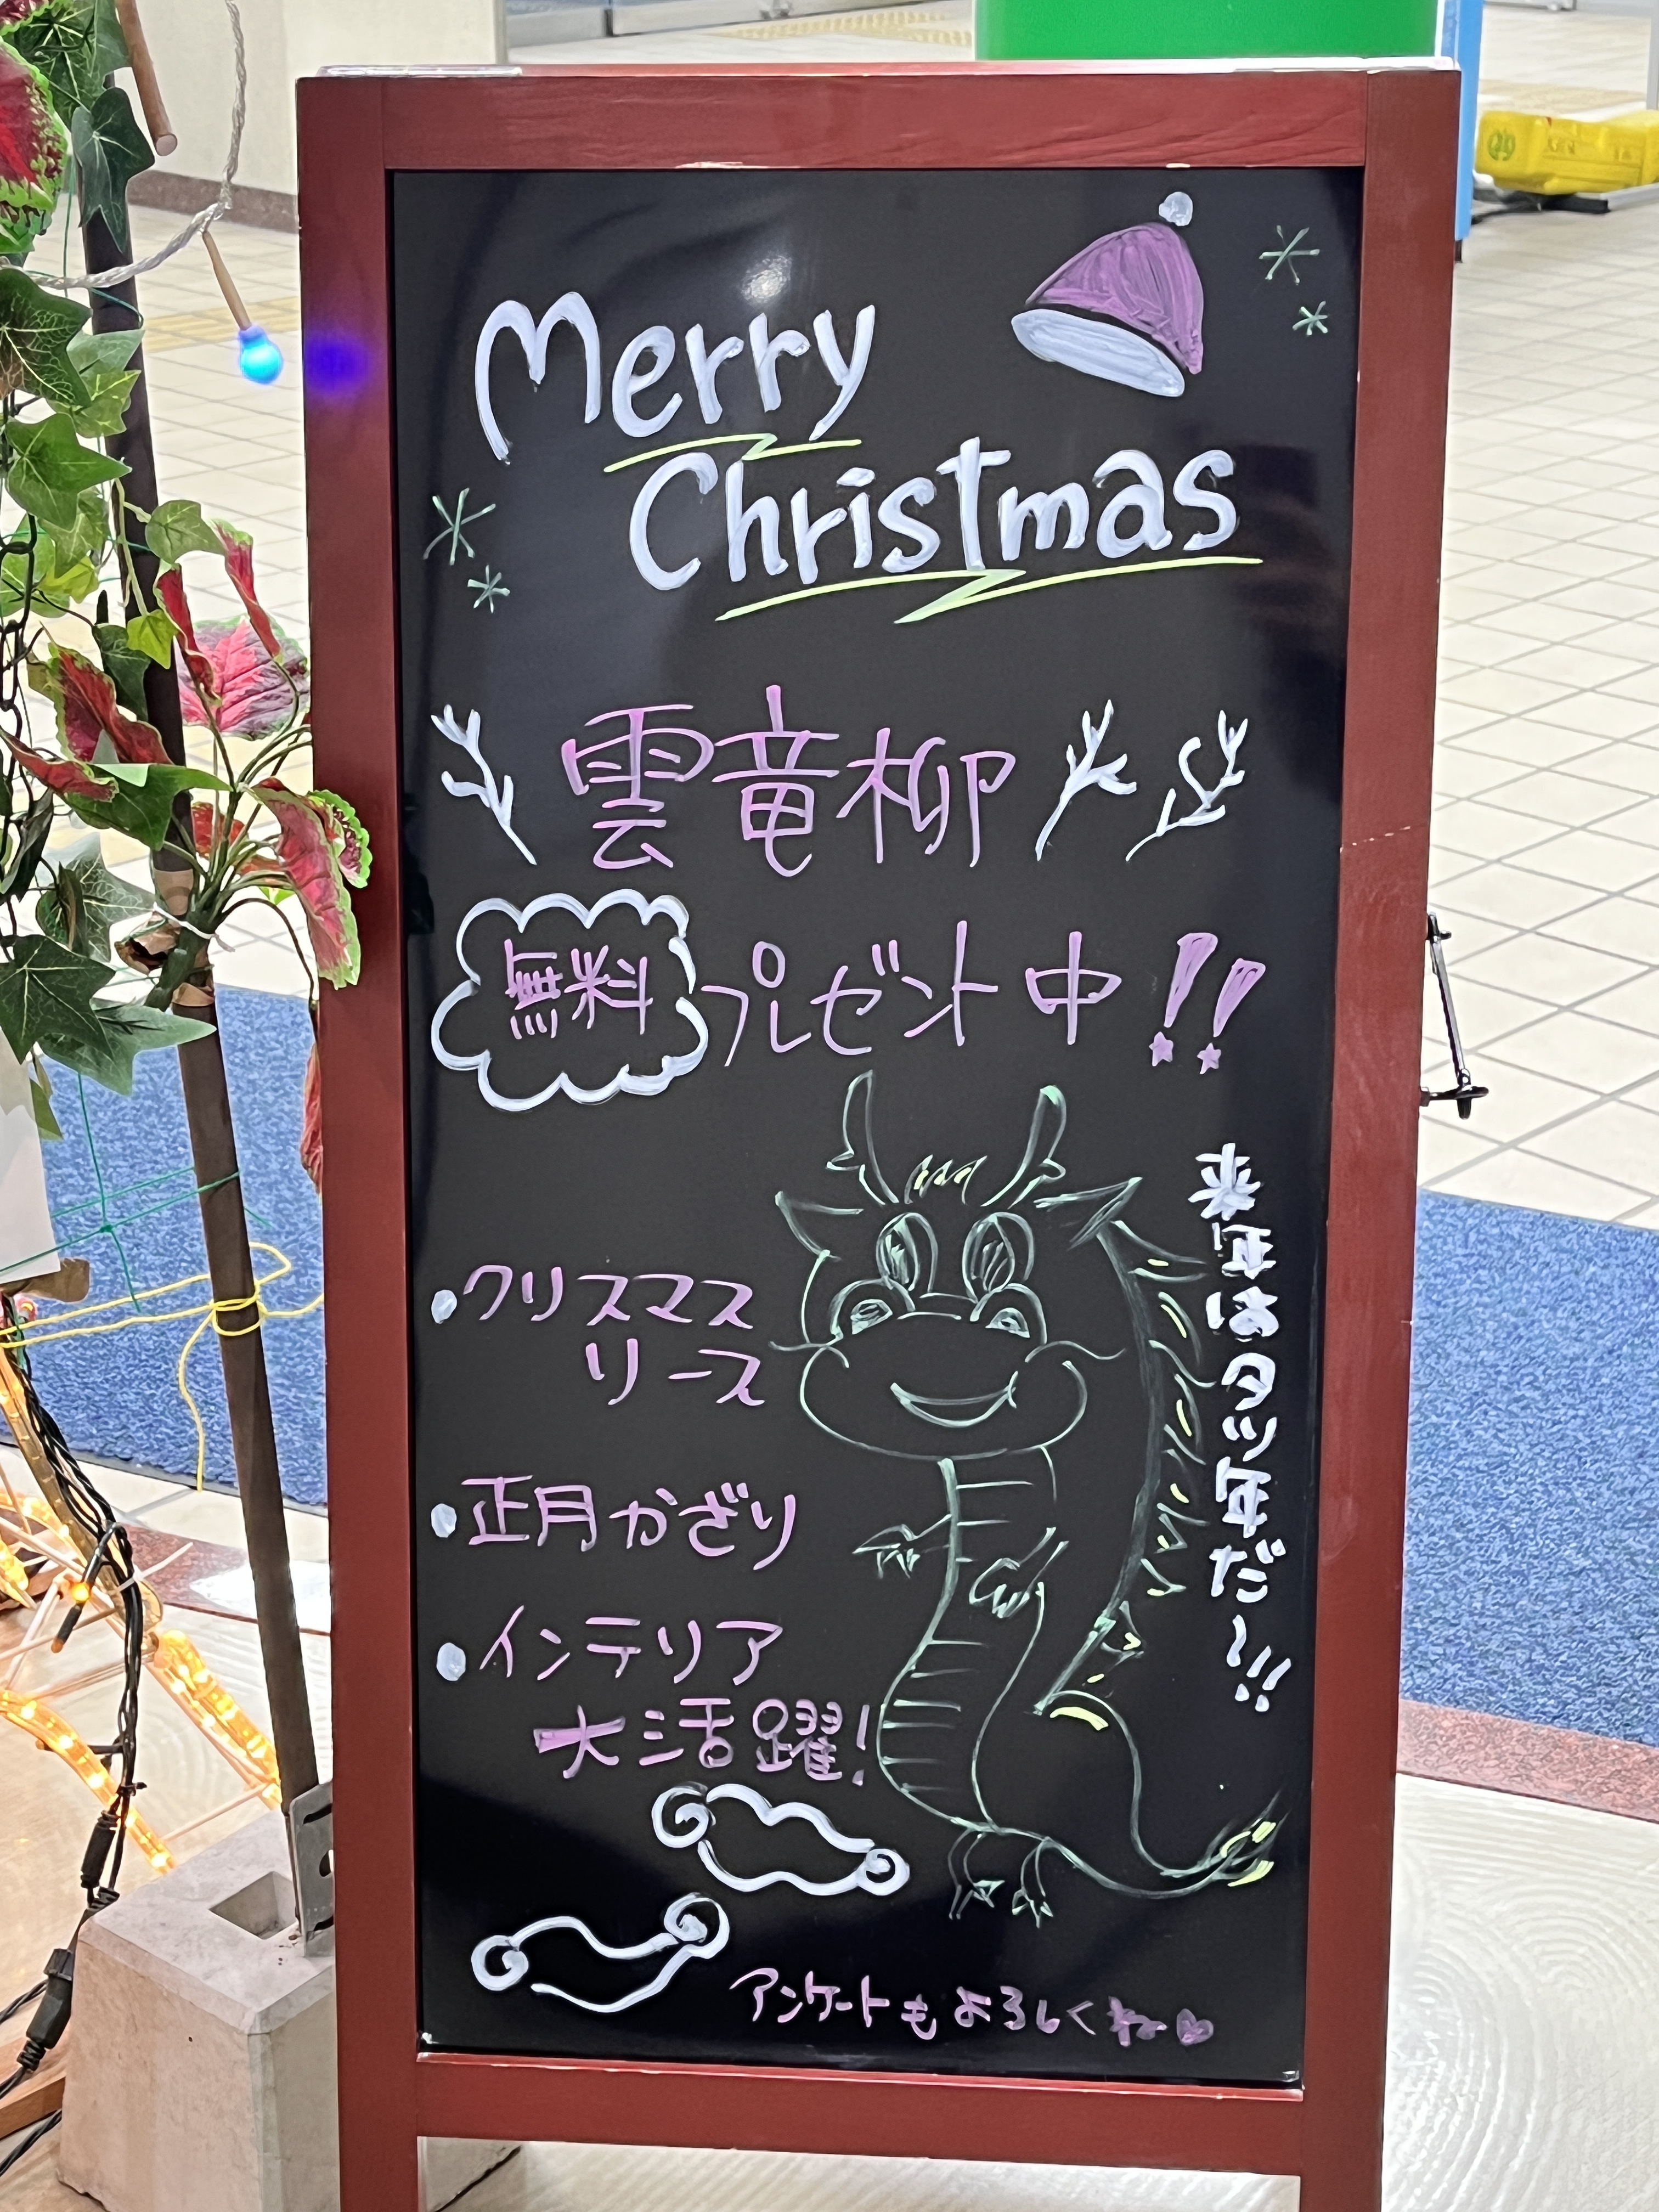 Merry
Christmas
雲竜柳
無料 プレゼント中!!
来年はタツ年だ〜!!!
・クリスマス
リース
・正月かざり
・インテリア
大活躍!
アンケートもよろしくね♡